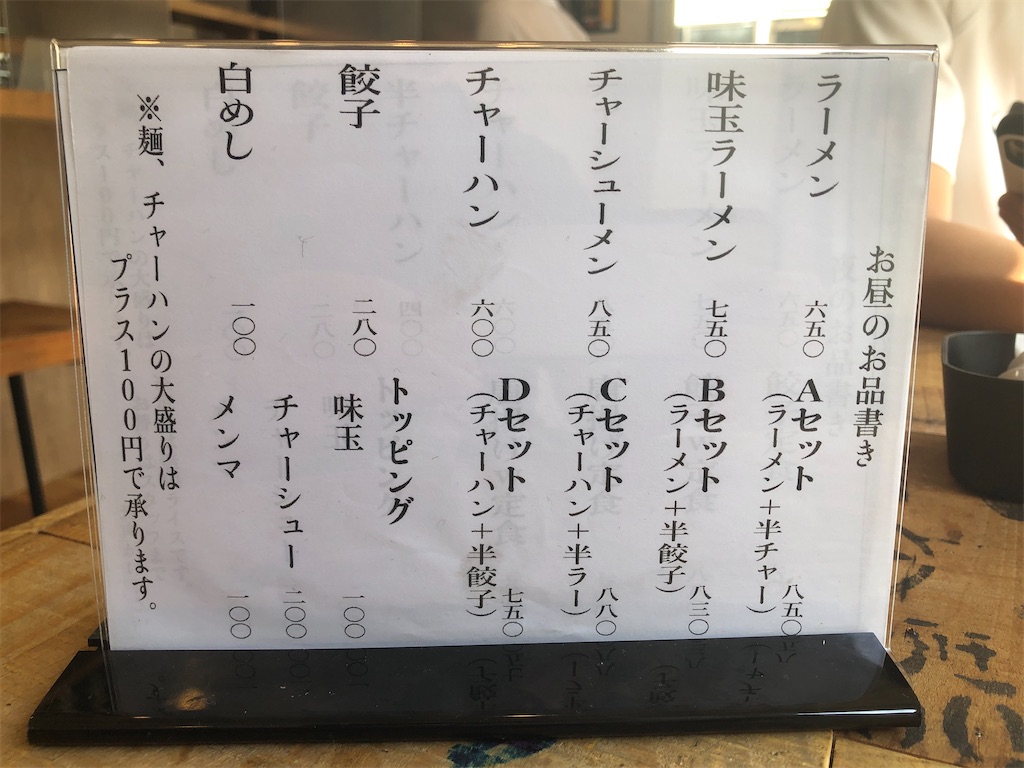 お昼のお品書き
ラーメン 六五〇
味玉ラーメン 七五〇
チャーシューメン 八五〇
チャーハン 六〇〇
餃子 二八〇
白めし 一〇〇
Aセット
(ラーメン+半チャー) 八五〇
Bセット
(ラーメン+半餃子) 八三〇
Cセット
(チャーハン+半ラー) 八八〇
Dセット
(チャーハン+半餃子) 七五〇
トッピング
味玉 一〇〇
チャーシュー 二〇〇
メンマ 一〇〇
※麺、チャーハンの大盛りは
プラス100円で承ります。